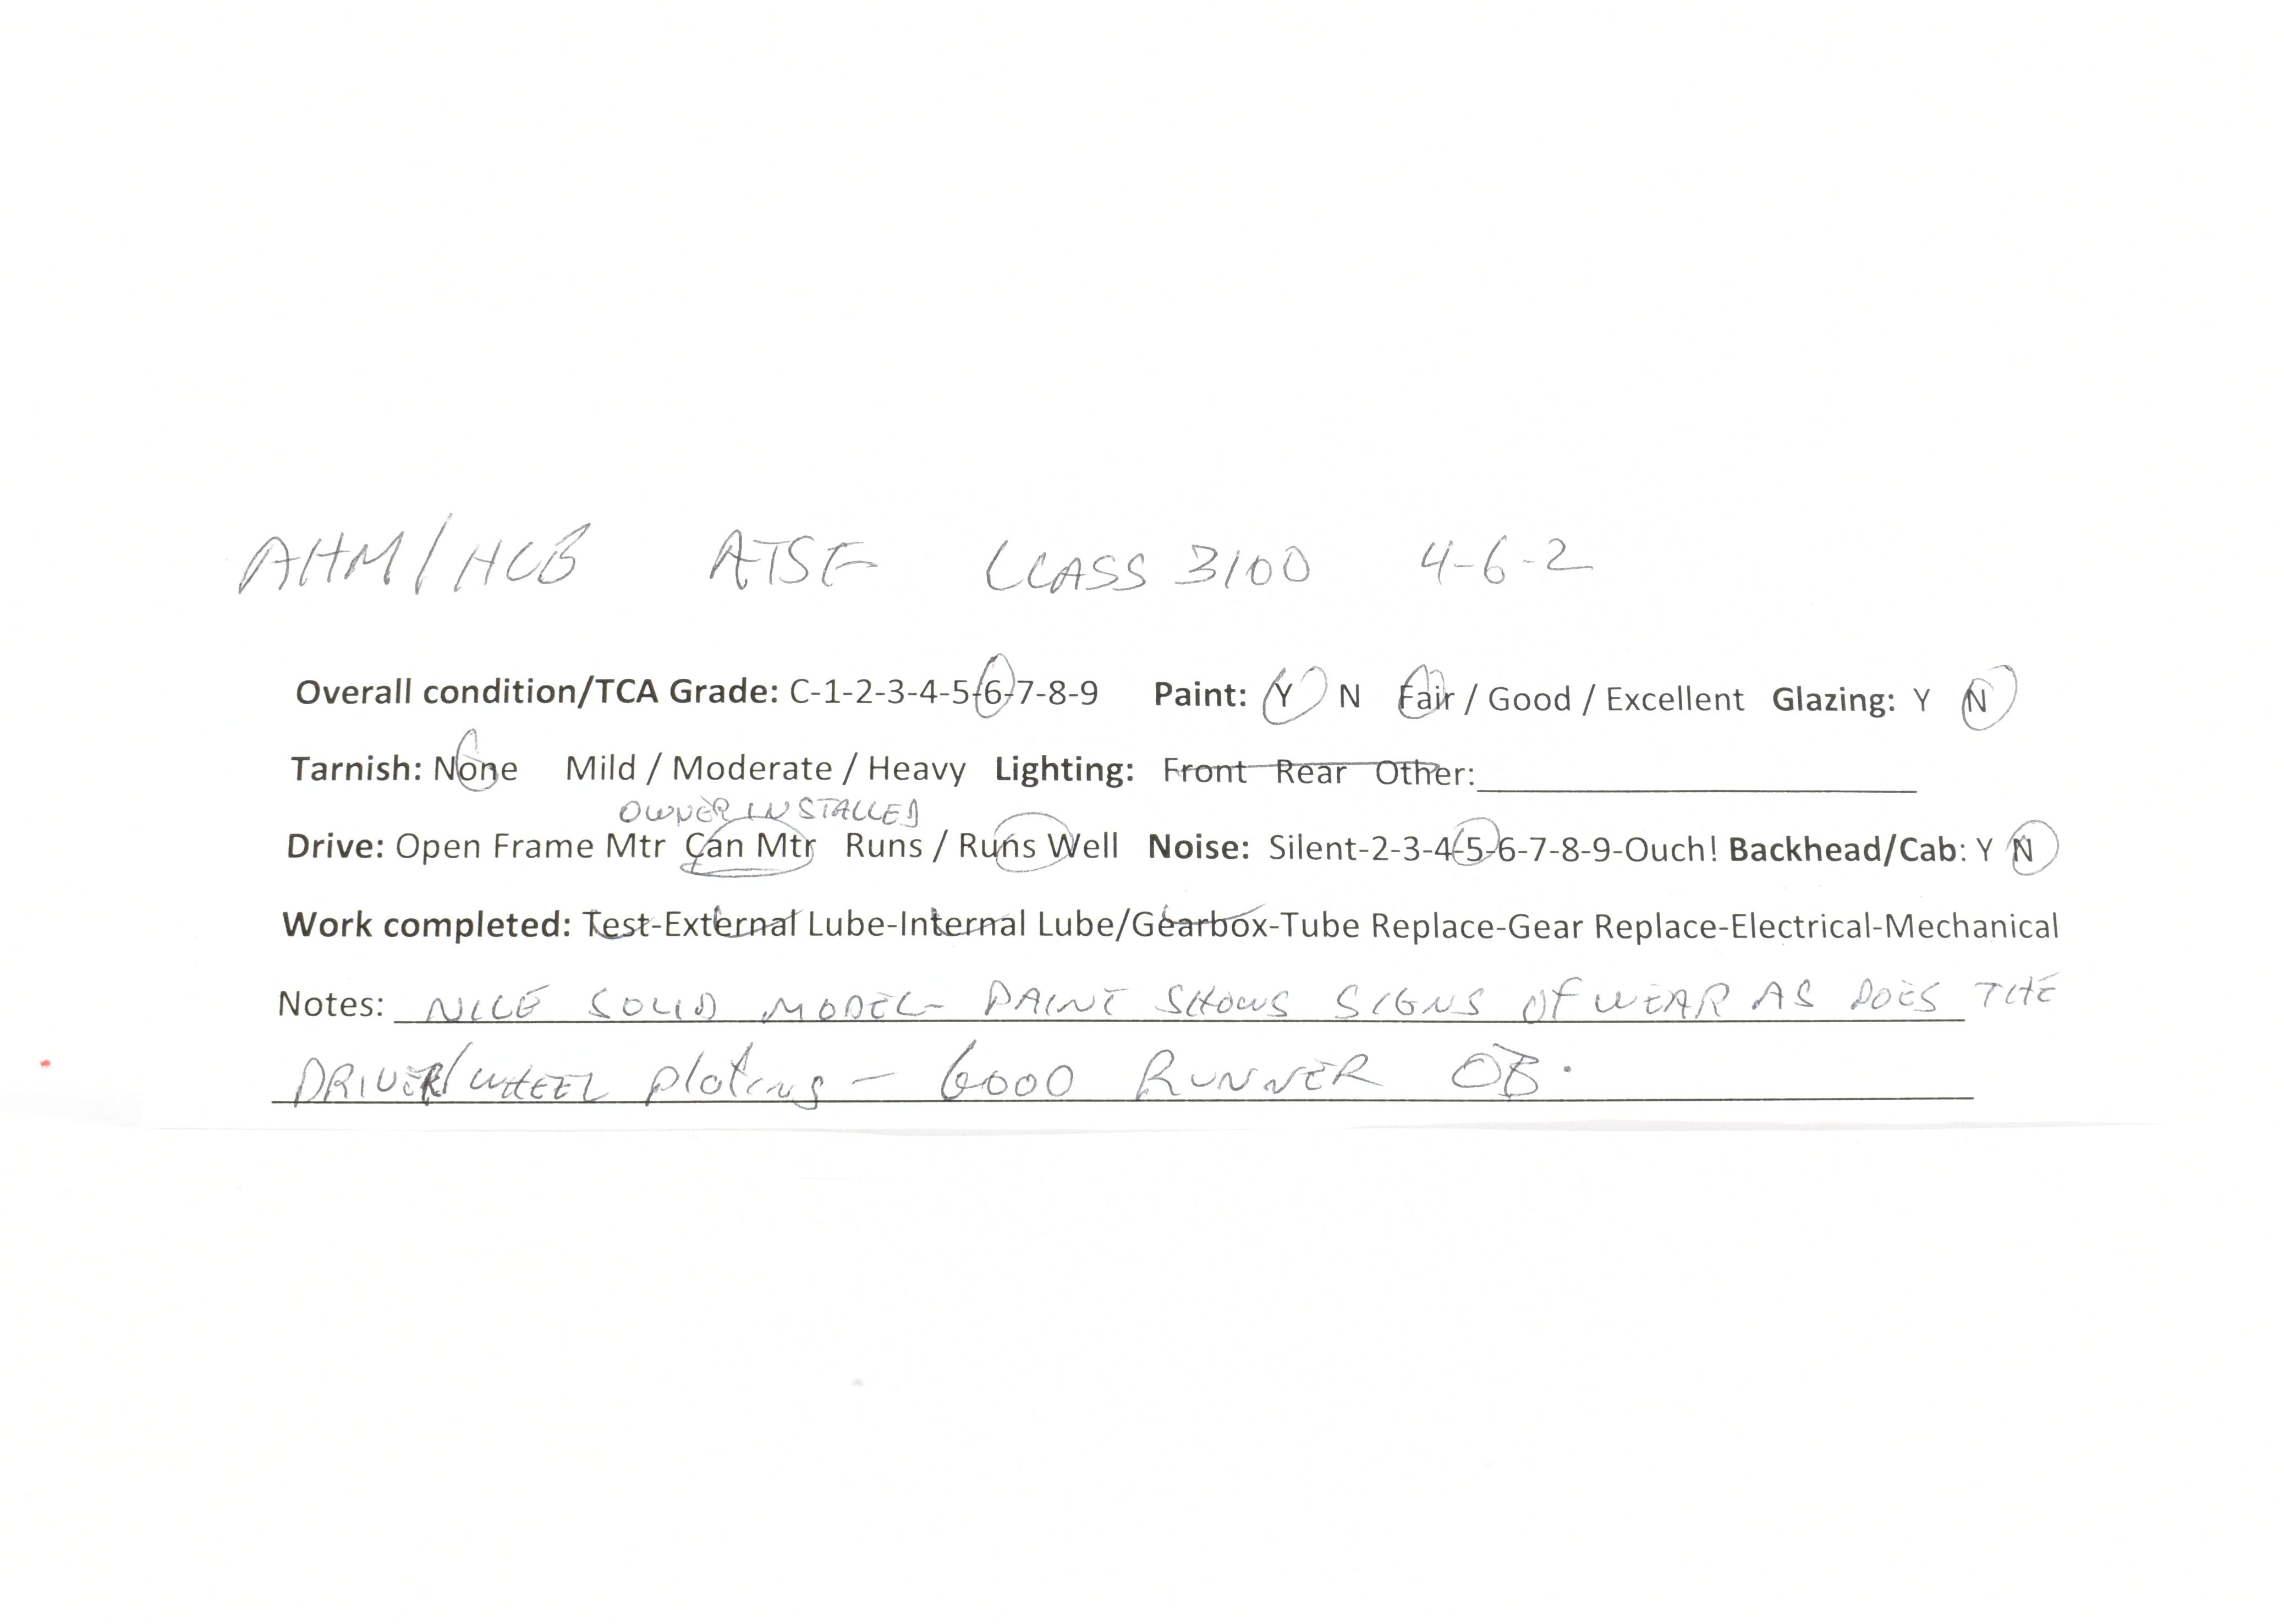 AHM/HCB ATSF CLASS 3100 4-6-2
Overall condition/TCA Grade: C-1-2-3-4-5-6-7-8-9 Paint: Y N Fair / Good / Excellent Glazing: Y N
Tarnish: None Mild / Moderate / Heavy Lighting: Front Rear Other:
OWNER INSTALLED
Drive: Open Frame Mtr Can Mtr Runs / Runs Well Noise: Silent-2-3-4-5-6-7-8-9-Ouch! Backhead/Cab: Y N
Work completed: Test-External Lube-Internal Lube/Gearbox-Tube Replace-Gear Replace-Electrical-Mechanical
Notes: NICE SOLID MODEL- PAINT SHOWS SIGNS OF WEAR AS DOES THE
DRIVER/WHEEL plating - GOOD RUNNER OB.